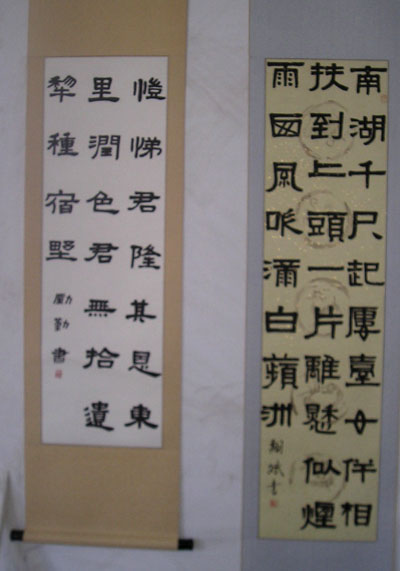 南湖千尺起臺伴相
扶到上頭一片離似煙
雨西風吹滿白蘋洲
書
愷悌君隆其恩東
里潤色君無拾遺
犂種宿野
勤書